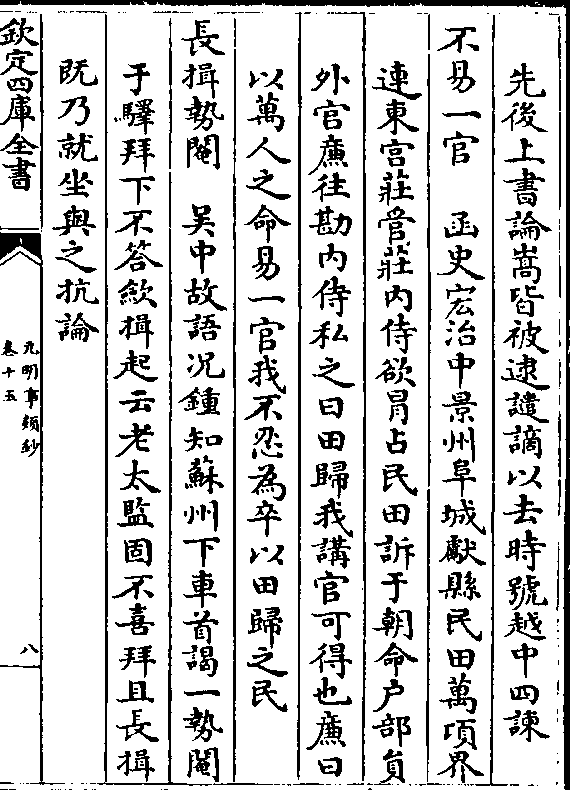 先後上書論嵩皆被逮譴謫以去時號越中四諫
不易一官　函史宏治中景州阜城獻縣民田萬頃界
連東宮莊管莊内侍欲冐占民田訴于朝命户部員
外官廉往勘内侍私之曰田歸我講官可得也廉曰
以萬人之命易一官我不忍為卒以田歸之民
長揖勢閹　吳中故語况鍾知蘇州下車首謁一勢閹
于驛拜下不答歛揖起云老太監固不喜拜且長揖
既乃就坐與之抗論
欽定四庫全書
元明事類鈔
卷十五
八